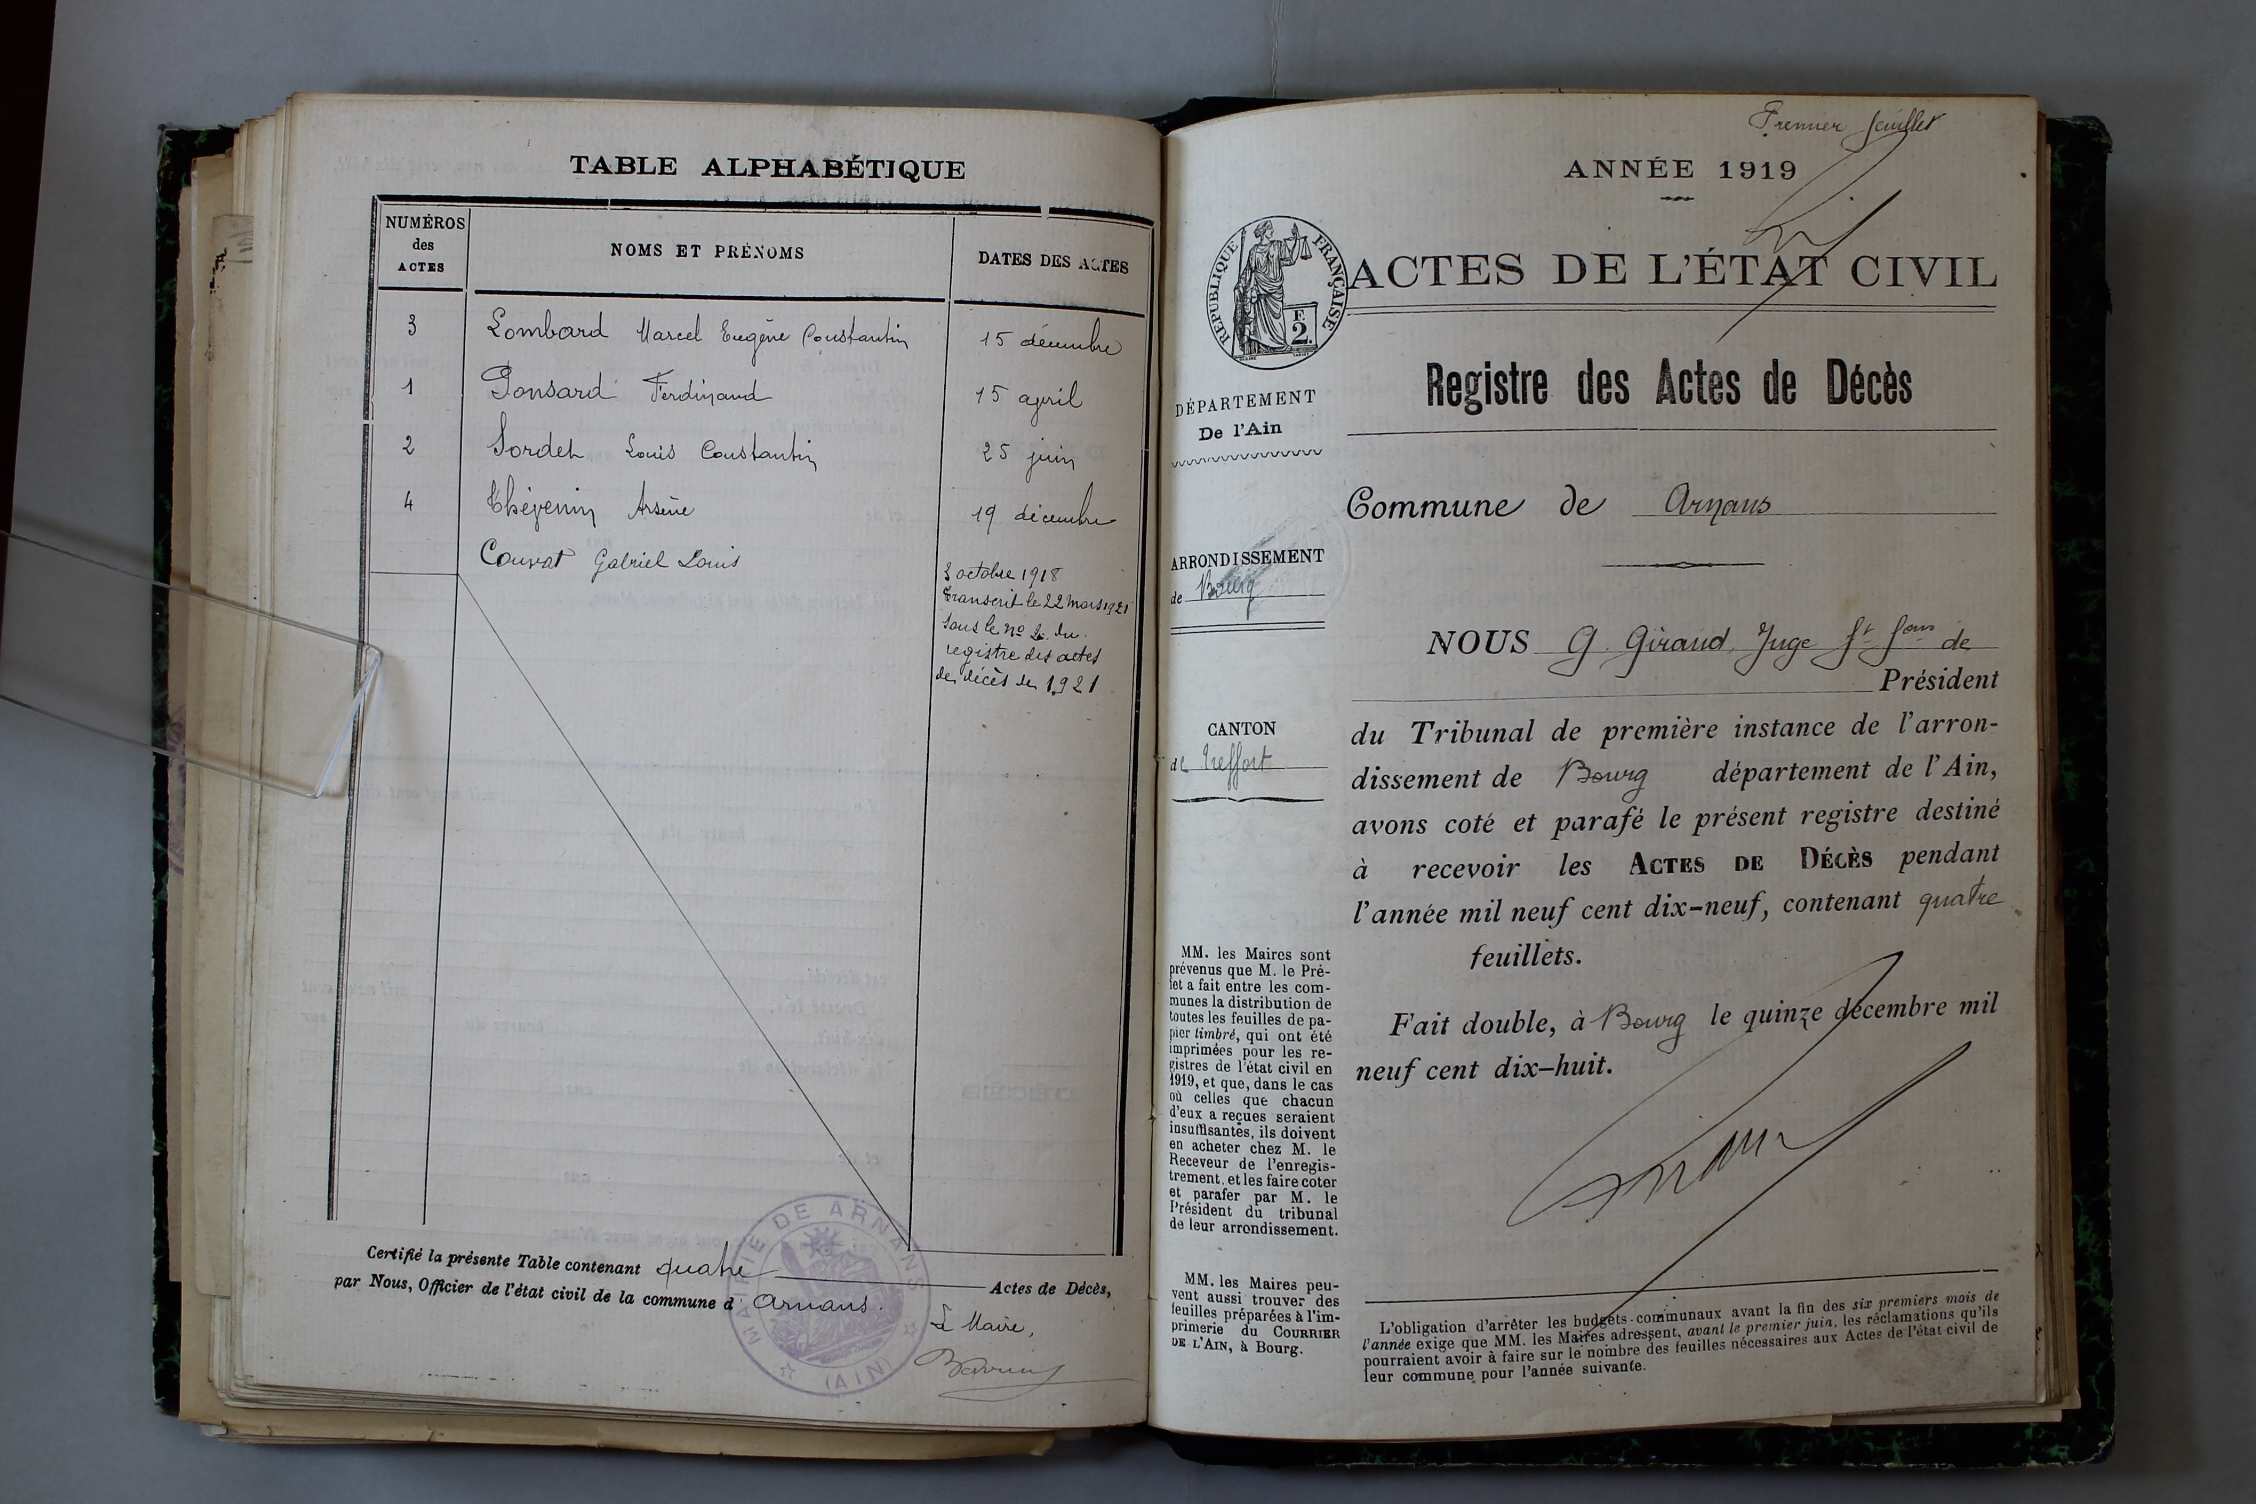 TABLE ALPHABÉTIQUE
NUMÉROS
des
ACTES
NOMS ET PRÉNOMS
DATES DES ACTES
3 Lombard Marcel Eugène Constantin 15 décembre
1 Ponsard Ferdinand 15 avril
2 Sordet Louis Constantin 25 juin
4 Thévenin Arsène 19 décembre
Couvat Gabriel Louis
3 octobre 1918
transcrit le 22 mars 1921
sous le no 2 du
registre des actes
de décès de 1921
Certifié la présente Table contenant quatre Actes de Décès,
par Nous, Officier de l'état civil de la commune d'Arnans.
MAIRIE DE ARNANS
(AIN)
Le Maire,
Premier feuillet
ANNÉE 1919
RÉPUBLIQUE FRANÇAISE
F.
2.
ACTES DE L'ÉTAT CIVIL
Registre des Actes de Décès
DÉPARTEMENT
De l'Ain
Commune de Arnans
ARRONDISSEMENT
de Bourg
CANTON
de Treffort
NOUS G. Giraud, Juge ft fons de
Président
du Tribunal de première instance de l'arron-
dissement de Bourg département de l'Ain,
avons coté et parafé le présent registre destiné
à recevoir les ACTES DE DÉCÈS pendant
l'année mil neuf cent dix-neuf, contenant quatre
feuillets.
Fait double, à Bourg le quinze décembre mil
neuf cent dix-huit.
MM. les Maires sont
prévenus que M. le Pré-
fet a fait entre les com-
munes la distribution de
toutes les feuilles de pa-
pier timbré, qui ont été
imprimées pour les re-
gistres de l'état civil en
1919, et que, dans le cas
où celles que chacun
d'eux a reçues seraient
insuffisantes, ils doivent
en acheter chez M. le
Receveur de l'enregis-
trement, et les faire coter
et parafer par M. le
Président du tribunal
de leur arrondissement.
MM. les Maires peu-
vent aussi trouver des
feuilles préparées à l'im-
primerie du COURRIER
DE L'AIN, à Bourg.
L'obligation d'arrêter les budgets communaux avant la fin des six premiers mois de
l'année exige que MM. les Maires adressent, avant le premier juin, les réclamations qu'ils
pourraient avoir à faire sur le nombre des feuilles nécessaires aux Actes de l'état civil de
leur commune pour l'année suivante.